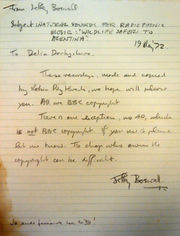 From Jeffery Boswall
Subject NATURAL SOUNDS FOR RADIOPHONIC
MUSIC: "WILDLIFE SAFARI TO
ARGENTINA"
19 May '72
To Delia Derbyshire.
These recordings, made and copied
by , we hope will please
you. All are BBC copyright
There is one exception, no. AD, which
is not BBC copyright. If you use it please
let me know. The chap who owns the
copyright can be difficult.
Jeffery Boswall